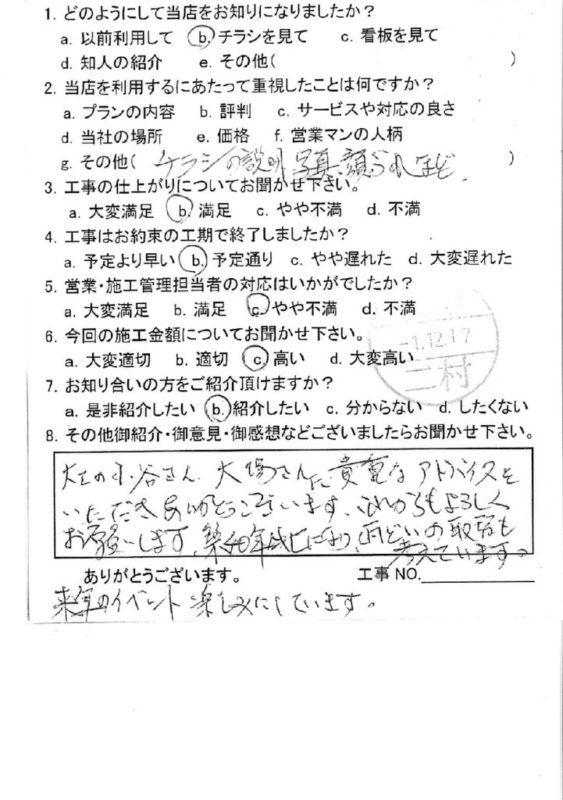 1. どのようにして当店をお知りになりましたか?
a. 以前利用して b. チラシを見て c. 看板を見て
d. 知人の紹介 e. その他( )
2. 当店を利用するにあたって重視したことは何ですか?
a. プランの内容 b. 評判 c. サービスや対応の良さ
d. 当社の場所 e. 価格 f. 営業マンの人柄
g. その他(チラシの説明 写真、顔ぶれなど)
3. 工事の仕上がりについてお聞かせ下さい。
a. 大変満足 b. 満足 c. やや不満 d. 不満
4. 工事はお約束の工期で終了しましたか?
a. 予定より早い b. 予定通り c. やや遅れた d. 大変遅れた
5. 営業・施工管理担当者の対応はいかがでしたか?
a. 大変満足 b. 満足 c. やや不満 d. 不満
6. 今回の施工金額についてお聞かせ下さい。
a. 大変適切 b. 適切 c. 高い d. 大変高い
-1.12.17
二村
7. お知り合いの方をご紹介頂けますか?
a. 是非紹介したい b. 紹介したい c. 分からない d. したくない
8. その他御紹介・御意見・御感想などございましたらお聞かせ下さい。
の小谷さん 大場さんに貴重なアドバイスを
いただきありがとうございます、これからもよろしく
お願いします、築 年 になり、雨どいの も
考えています。
ありがとうございます。 工事 NO.
来年のイベント楽しみにしています。